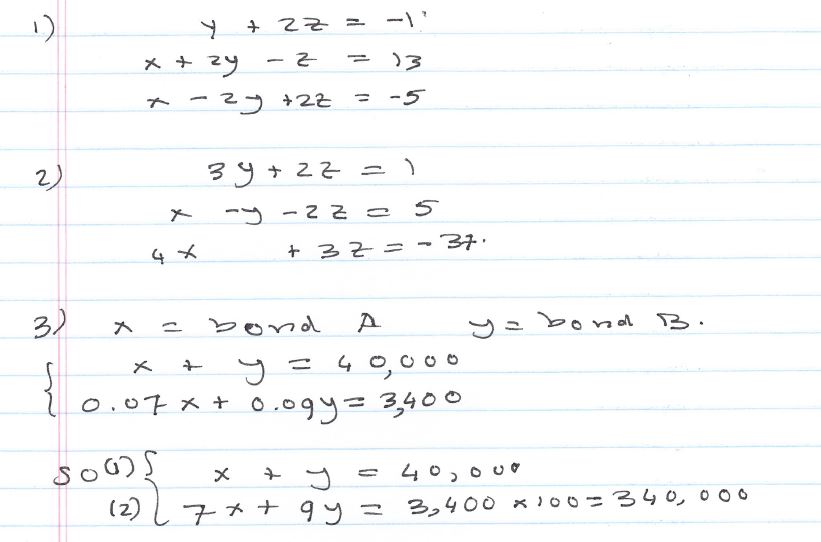 1) y + 2z = -1
x + 2y - z = 13
x - 2y + 2z = -5
2) 3y + 2z = 1
x - y - 2z = 5
4x + 3z = -37.
3) x = bond A y = bond B.
{ x + y = 40,000
0.07x + 0.09y = 3,400
so (1) { x + y = 40,000
(2) 7x + 9y = 3,400 x 100 = 340,000